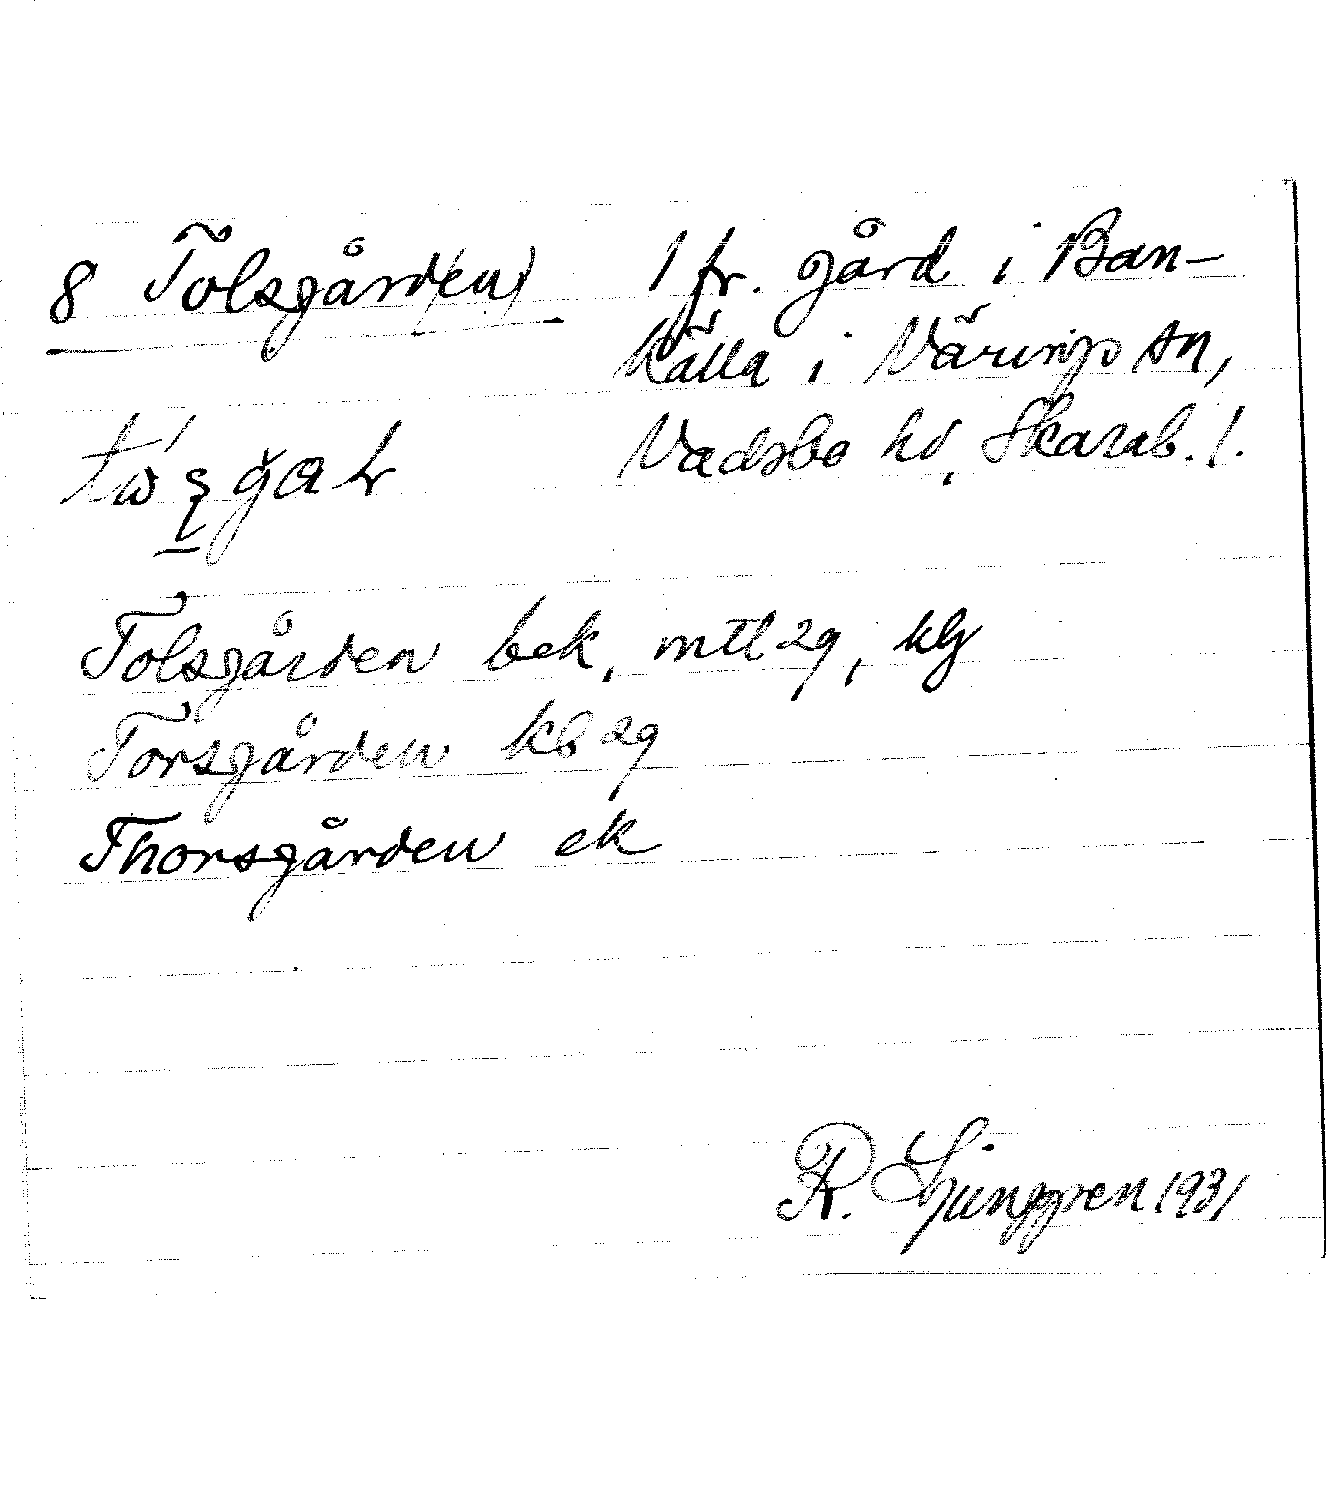 8 Tolsgård(en)
1 fr. gård i Ban-
källa i Värings sn,
Vadsbo hd, Skarab. l.
Tolsgården bek, mtl 29, klj
Torsgården kb 29
Thorsgården ek
R. Ljunggren 1931